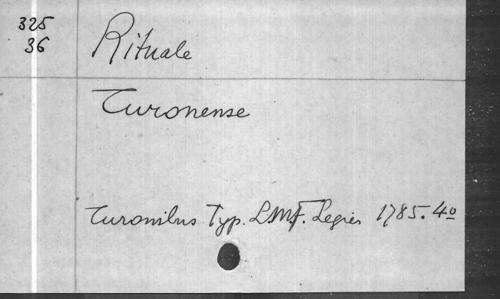 325
36
Rituale
Turonense
Turonibus Typ. L.M.F. Legier 1785. 4o